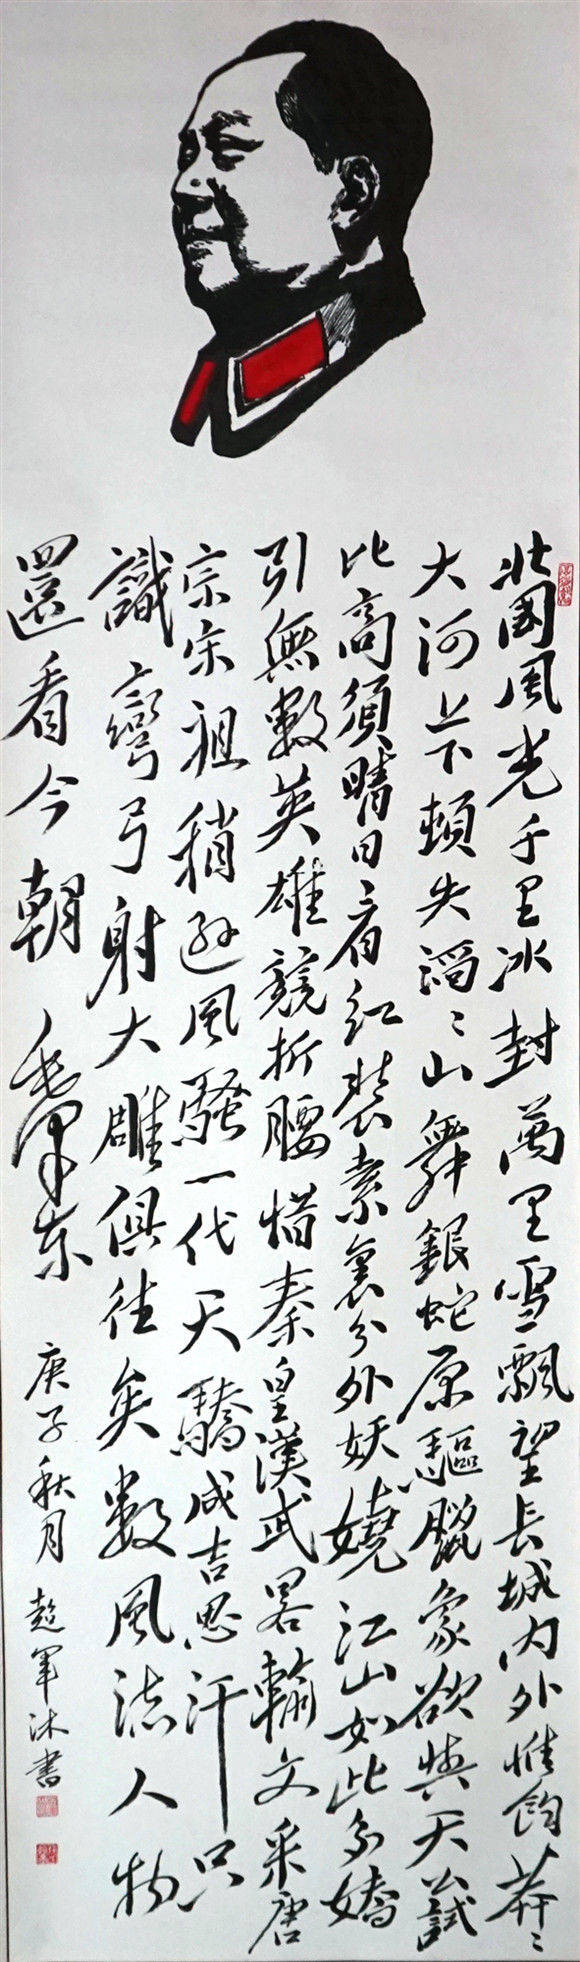 北國風光千里冰封萬里雪飄望長城内外惟餘莽〻
大河上下頓失滔〻山舞銀蛇原驅臘象欲與天公試
比高須晴日看紅裝素裹分外妖嬈江山如此多嬌
引無數英雄競折腰惜秦皇漢武畧輸文采唐
宗宋祖稍遜風騷一代天驕成吉思汗只
識彎弓射大雕俱往矣數風流人物
還看今朝 毛澤东 庚子秋月 趙軍沐書